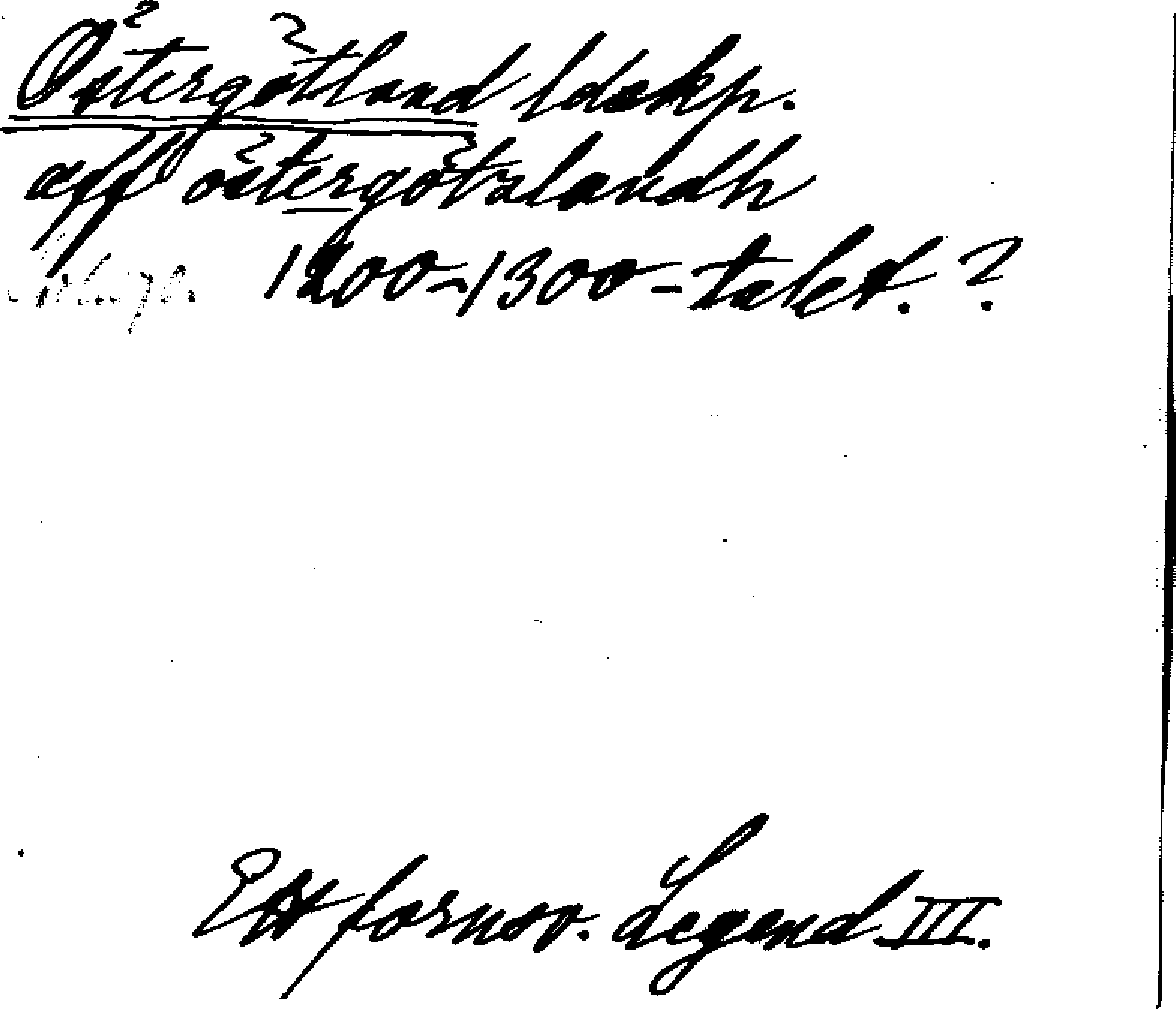 Östergötland ldskp.
aff östergötzlandh
1200-1300-talet. ?
Ett fornsv. Legend. III.